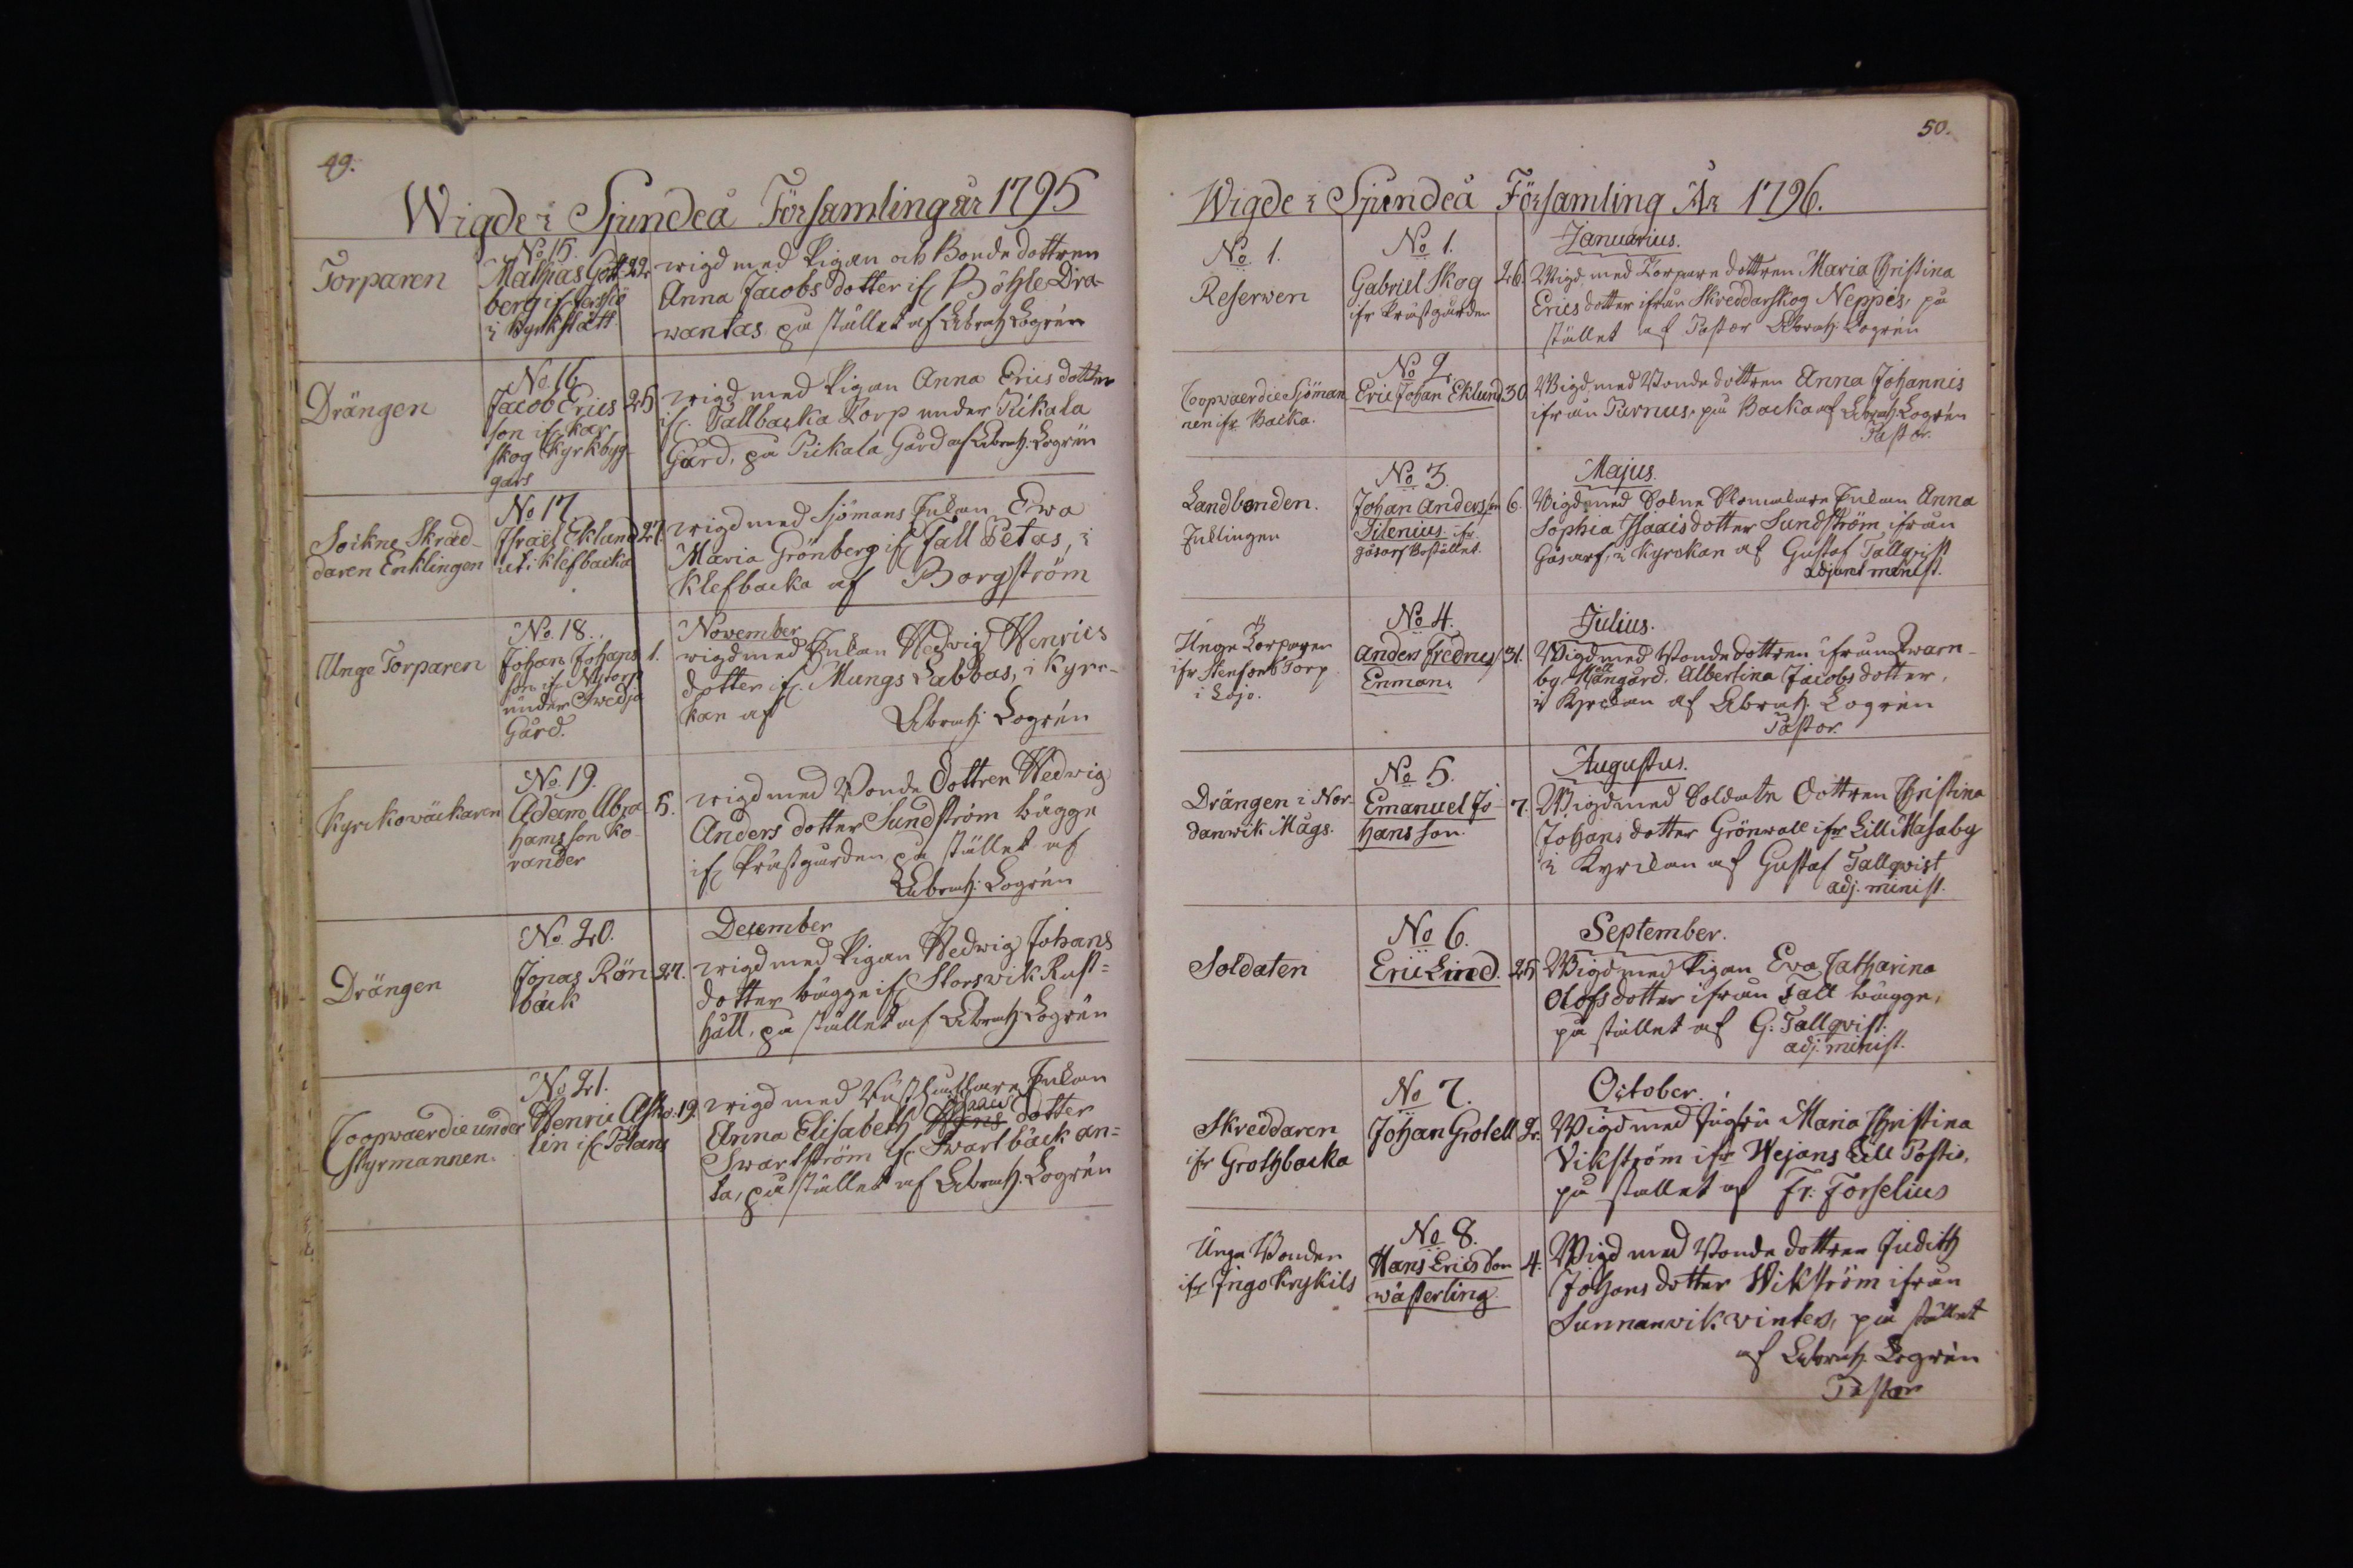 49.
Wigde i Sjundeå Församling år 1795
Torparen
No 15.
Mathias Gott-
berg if
i Kyrkslätt.
22.
wigd med Pigan och Bonde dottren
Anna Jacobs dotter if Böhle Dra-
wantas på stället af Abrah Logrén
Drängen
No. 16
Jacob Erics
son if Kar-
skog Kyrkbyg-
gars
25
wigd med Pigan Anna Erics dotter
if. Tallbacka Torp under Pickala
Gård, på Pickala Gård af Abrah. Logrén
Sockne Skräd-
daren Enklingen
No 17.
Israël Eklund
ut i Klefbacka
27.
wigd med Sjömans Enkan Ewa
Maria Grönberg if Fall Petas, i
Klefbacka af Borgström
Unge Torparen
No. 18.
Johan Johans
son if Nytorp
under Swedja
Gård.
1.
November
wigd med Enkan Hedvig Henrics
dotter if. Mungs Labbas, i Kyrc-
kan af Abrah: Logrén
Kyrckowäckaren
No. 19.
Adam Abra-
hams son Ko-
rander
5.
wigd med Bonde Dottren Hedwig
Anders dotter Sundström bägge
if Prästgården på stället af
Abrah: Logrén
Drängen
No. 20.
Jonas Rön
bäck
27.
December
wigd med Pigan Hedwig Johans
dotter bägge if Storswik Rust=
håll, på stället af Abrah Logrén
Coopvaerdie under
Styrmannen.
No. 21.
Henric Ahl-
lin if Pölans
19.
wigd med Rusthållare Enkan
Isaacs
Anna Elisabeth dotter
Swartström if Swartbäck an=
ta, på stället af Abrah. Logrén
50.
Wigde i Sjundeå Församling År 1796.
No. 1.
Reserwen
No 1.
Gabriel Skog
ifr Prästgården
26.
Januarius.
Wigd med Torpare dottren Maria Christina
Erics dotter ifrån Skreddarskog Neppes, på
stället af Pastor Abrah: Logrén
Coopvaerdie Sjöman
nen ifr Backa.
No 2.
Eric Johan Eklund
30.
Wigd med Bonde dottren Anna Johannis
ifrån Purnus, på Backa af Abrah Logrén
Pastor.
Landbonden.
Enklingen
No 3.
Johan Anders son
Silenius ifr.
Gåsarf Bostället.
6.
Majus.
Wigd med Sockne Enkan Anna
Sophia Isaacs dotter Sundström ifrån
Gåsarf, i Kyrckan af Gustaf Tallqvist
adjunct minist.
Unge Torparen
ifr Stensors Torp
i Lojo.
No 4.
Anders Fredric
Enman.
31.
Julius.
Wigd med Bonde dottren ifrån Qwarn-
by Mångård, Albertina Jacobs dotter,
i Kyrckan af Abrah. Logrén
Pastor.
Drängen i Nor-
danwik Mågs.
No 5.
Emanuel Jo-
hans son.
7.
Augustus.
Wigd med Soldate Dottren Christina
Johans dotter Grönwall ifr Lill Masaby
i Kyrckan af Gustaf Tallqvist
adj. minist.
Soldaten
No 6.
Eric Lind.
25
September.
Wigd med Pigan Eva Catharina
Olofs dotter ifrån Fall bägge,
på stället af G: Tallqvist.
adj. minist.
Skreddaren
ifr Grothbacka
No 7.
Johan Grolell
2.
October.
Wigd med Jugfru Maria Christina
Vikström ifr Wejans Lill Postis,
på stället af Fr. Forselius
Unga Bonden
ifr Ingo Krykils
No 8.
Hans Erics Son
Wästerling.
4.
Wigd med Bonde dottren Judith
Johans dotter Wikström ifrån
Sunnanvik vinters, på stället
af Abrah. Logrén
Pastor